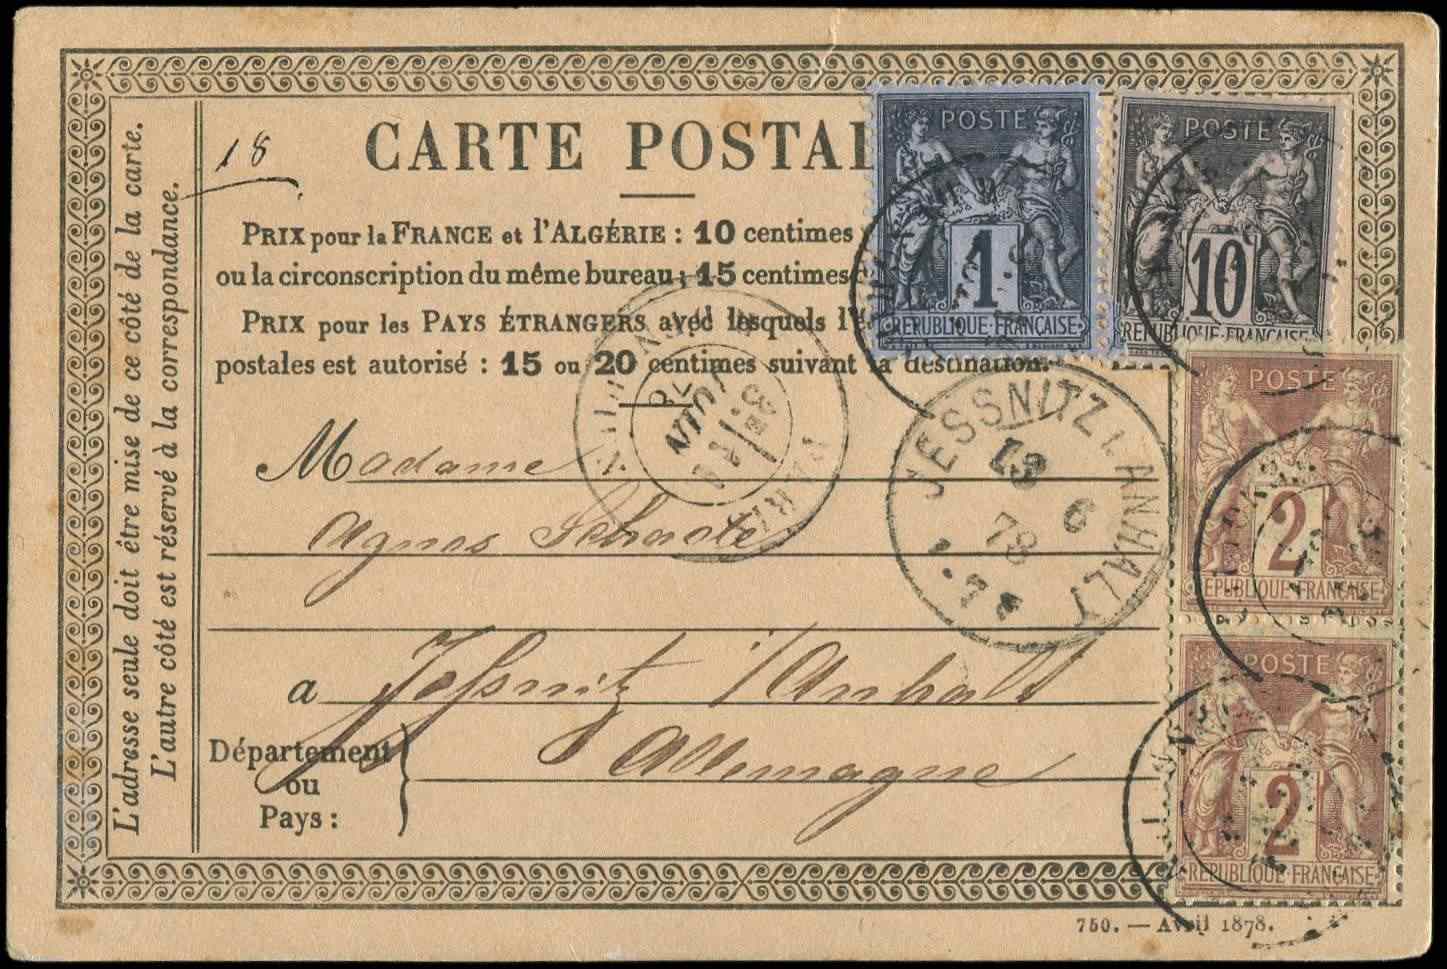 18
CARTE POSTAL
PRIX pour la FRANCE et l'ALGÉRIE : 10 centimes
ou la circonscription du même bureau ; 15 centimes
PRIX pour les PAYS ÉTRANGERS avec lesquels l'é
postales est autorisé : 15 ou 20 centimes suivant la destination.
L'adresse seule doit être mise de ce côté de la carte.
L'autre côté est réservé à la correspondance.
POSTE
1
REPUBLIQUE FRANÇAISE
POSTE
10
REPUBLIQUE FRANÇAISE
POSTE
2
REPUBLIQUE FRANÇAISE
POSTE
2
REPUBLIQUE FRANÇAISE
PARIS
JUIN
78
JESSNITZ i. ANHALT
13
6
78
Madame
Agnes
a Jessnitz i/Anhalt
Département
ou
Pays :
Allemagne
750. — Avril 1878.